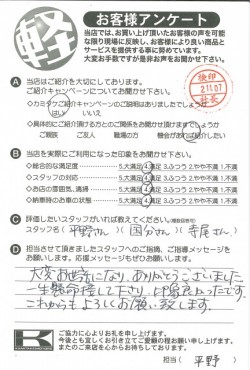 軽
お客様アンケート
当店では、お買い上げ頂いたお客様の声を可能
な限り現場に反映し、お客様により良い商品と
サービスを提供する事に努めています。
大変お手数ですが是非お声をお聞かせ下さい。
検印
2.11.07
社長
A 当店はご紹介を大切にしております。
ご紹介キャンペーンについてお聞かせ下さい。
◇カミタケご紹介キャンペーンのご説明はありましたでしょうか
はい いいえ
◇具体的にご紹介頂ける方とのご関係をお聞かせ頂けますでしょうか
ご親戚 ご友人 職場の方 機会があれば紹介したい
B 当店を実際にご利用になった印象をお聞かせ下さい。
◇総合的な満足度 5.大満足 4.満足 3.ふつう 2.やや不満 1.不満
◇スタッフの対応 5.大満足 4.満足 3.ふつう 2.やや不満 1.不満
◇お店の雰囲気、清潔 5.大満足 4.満足 3.ふつう 2.やや不満 1.不満
◇納車時のお車の状態 5.大満足 4.満足 3.ふつう 2.やや不満 1.不満
C 評価したいスタッフがいれば教えてください。(複数回答可)
スタッフ名 ( 平野さん ) ( 国分さん ) ( 寺尾さん )
D 担当させて頂きましたスタッフへのご指摘、ご指導メッセージを
お願いします。応援メッセージもぜひお願いします。
大変お世話になり、ありがとうございました
一生懸命接して下さり、印象良かったです。
これからもよろしくお願い致します。
K
ご協力に心よりお礼を申し上げます。
今後とも宜しくお引き立てご愛顧の程お願い申し上げます。
またのご来店を心からお待ちしております。
担当 ( 平野 )